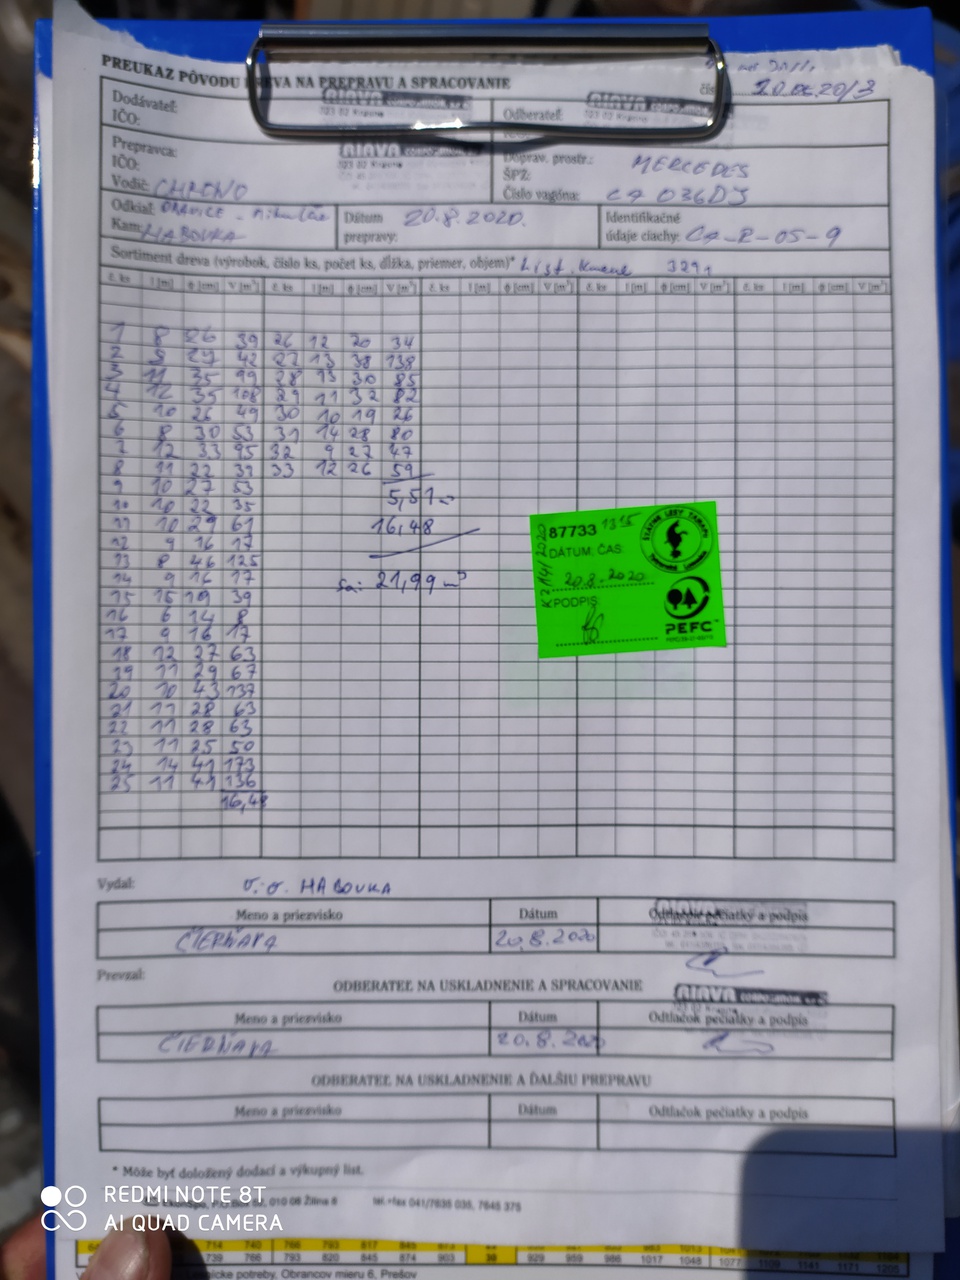 PREUKAZ PÔVODU DREVA NA PREPRAVU A SPRACOVANIE
20.08.20/3
Dodávateľ:
IČO:
Odberateľ:
023 02 Krásno
Prepravca:
IČO:
Vodič: CHRENO
Doprav. prostr.: MERCEDES
ŠPZ:
Číslo vagóna: CA 036DJ
Odkiaľ: ORAVICE - Mihulčie
Kam: HABOVKA
Dátum prepravy: 20.8.2020.
Identifikačné údaje ciachy: CA-R-05-9
Sortiment dreva (výrobok, číslo ks, počet ks, dĺžka, priemer, objem)* List. kmene
č. ks l [m] φ [cm] V [m³] č. ks l [m] φ [cm] V [m³] č. ks l [m] φ [cm] V [m³] č. ks l [m] φ [cm] V [m³] č. ks l [m] φ [cm] V [m³]
1 8 26 39 26 12 20 34
2 9 27 42 27 13 38 138
3 11 35 99 28 13 30 85
4 12 35 108 29 11 32 82
5 10 26 49 30 10 19 26
6 8 30 53 31 14 28 80
7 12 33 95 32 9 27 47
8 11 22 39 33 12 26 59
9 10 27 53 5,51
10 10 22 35
11 10 29 61 16,48
12 9 16 17
13 8 46 125
14 9 16 17 Sa: 21,99 m³
15 15 19 39
16 6 14 8
17 9 16 17
18 12 27 63
19 11 29 67
20 10 43 137
21 11 28 63
22 11 28 63
23 11 25 50
24 14 41 173
25 11 41 136
16,48
87733 1315
DÁTUM, ČAS:
20.8.2020
PODPIS:
ŠTÁTNE LESY TANAPu
PEFC
Vydal: O.-O. HABOVKA
Meno a priezvisko Dátum Odtlačok pečiatky a podpis
ČIERŇAVA 20.8.2020
Prevzal:
ODBERATEĽ NA USKLADNENIE A SPRACOVANIE
Meno a priezvisko Dátum Odtlačok pečiatky a podpis
ČIERŇAVA 20.8.2020
ODBERATEĽ NA USKLADNENIE A ĎALŠIU PREPRAVU
Meno a priezvisko Dátum Odtlačok pečiatky a podpis
* Môže byť doložený dodací a výkupný list.
010 08 Žilina 8 tel.+fax 041/7635 035, 7645 375
REDMI NOTE 8T
AI QUAD CAMERA
714 740 766 793 817 845
739 766 793 820 845 874 903 929 957 986 1017 1048 1077 1109 1141 1171 1205
potreby, Obrancov mieru 6, Prešov